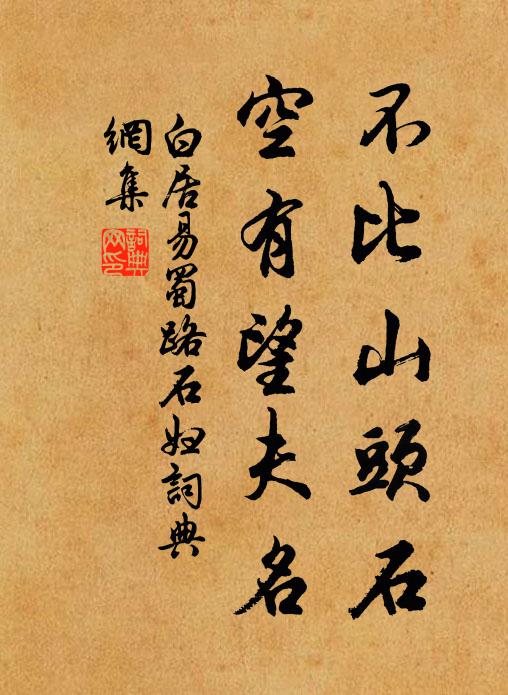 不比山頭石
空有望夫名
白居易蜀路石妲詞典
網集
詞典
网印